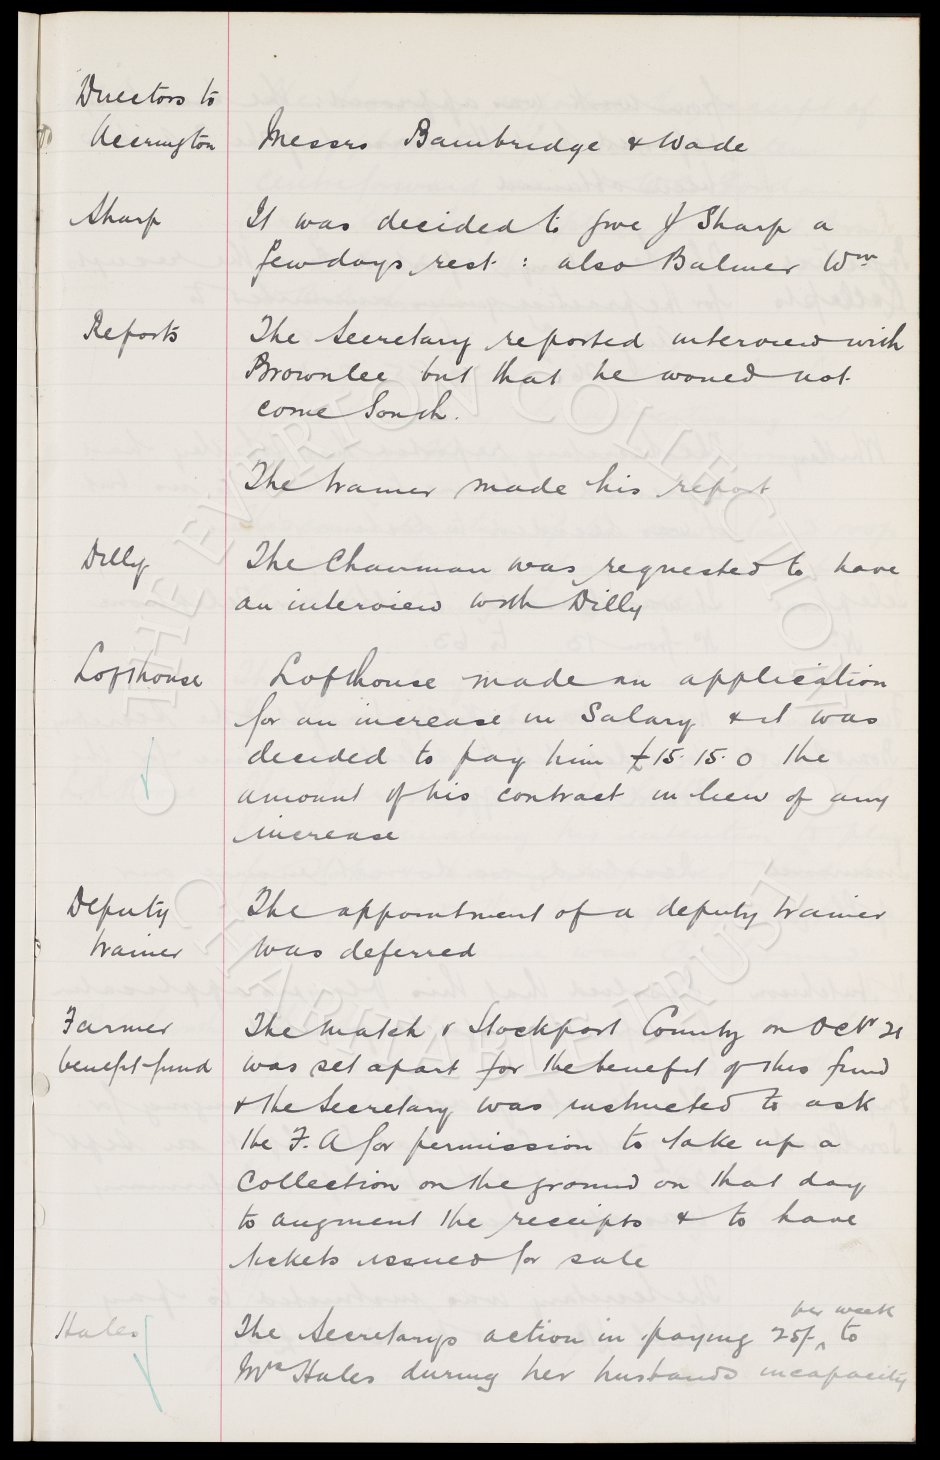 Directors to
Accrington Messrs Bainbridge & Wade
Sharp It was decided to give J Sharp a
few days rest : also Balmer Wm
Reports The Secretary reported interview with
Brownlee but that he would not
come South.
The trainer made his report
Dilly The Chairman was requested to have
an interview with Dilly
Lofthouse Lofthouse made an application
for an increase in Salary & it was
decided to pay him £15.15.0 the
amount of his contract in lieu of any
increase
Deputy The appointment of a deputy trainer
trainer was deferred
Farmer The match v Stockport County on Octr 21
benefit fund was set apart for the benefit of this fund
& the Secretary was instructed to ask
the F.A for permission to take up a
Collection on the ground on that day
to augment the receipts & to have
tickets issued for sale
per week
Hales The Secretarys action in paying 25/- ^ to
Mrs Hales during her husbands incapacity
THE EVERTON COLLECTION
CHARITABLE TRUST